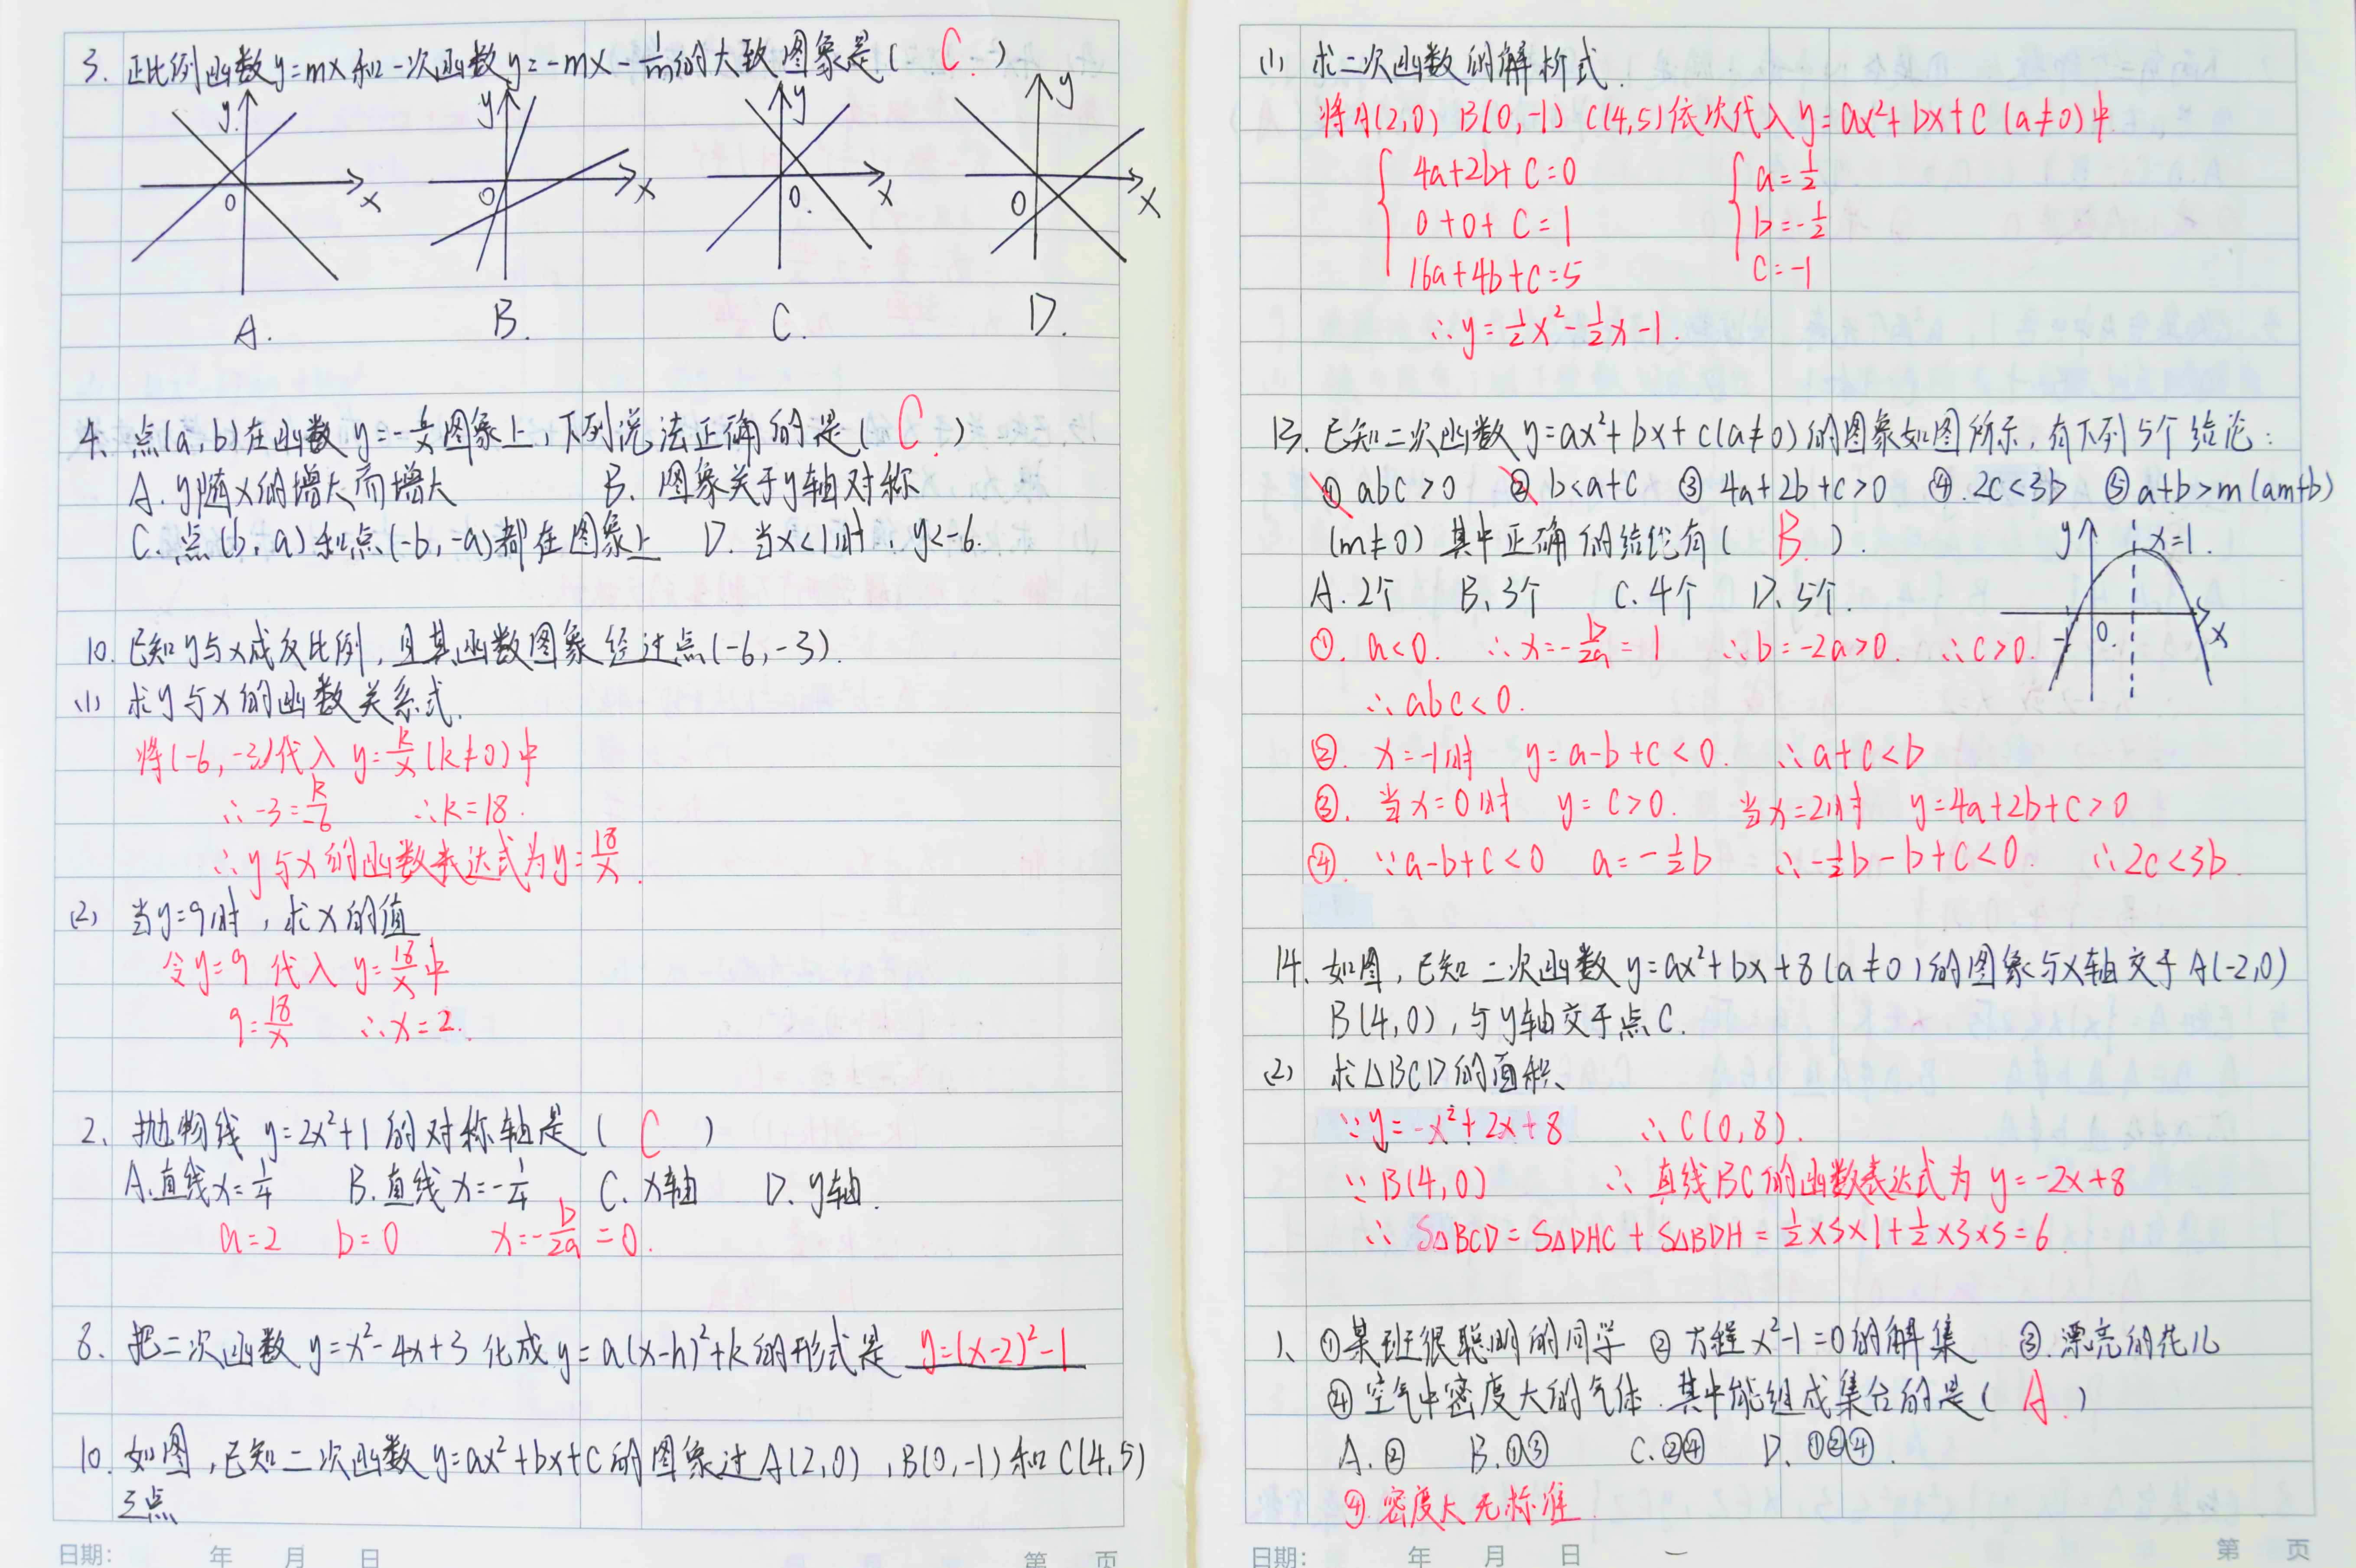 3. 正比例函数y=mx和一次函数y=-mx-1/m的大致图象是( C )
y y y y
x x x x
0 0 0. 0
A. B. C. D.
4. 点(a,b)在函数y=-6/x图象上,下列说法正确的是( C )
A. y随x的增大而增大 B. 图象关于y轴对称
C. 点(b,a)和点(-b,-a)都在图象上 D. 当x<1时,y<-6.
10. 已知y与x成反比例,且其函数图象经过点(-6,-3).
(1) 求y与x的函数关系式.
将(-6,-3)代入 y=k/x (k≠0)中
∴-3=k/-6 ∴k=18.
∴y与x的函数表达式为y=18/x.
(2) 当y=9时,求x的值
令y=9 代入 y=18/x中
9=18/x ∴x=2.
2. 抛物线 y=2x²+1的对称轴是( C )
A.直线x=1/4 B.直线x=-1/4 C. x轴 D. y轴.
a=2 b=0 x=-b/2a=0.
8. 把二次函数y=x²-4x+3化成y=a(x-h)²+k的形式是 y=(x-2)²-1
10. 如图,已知二次函数y=ax²+bx+c的图象过A(2,0),B(0,-1)和C(4,5)
三点
日期: 年 月 日 第 页
(1) 求二次函数的解析式.
将A(2,0) B(0,-1) C(4,5)依次代入 y=ax²+bx+c (a≠0)中.
4a+2b+c=0 a=1/2
0+0+c=1 b=-1/2
16a+4b+c=5 c=-1
∴y=1/2x²-1/2x-1.
13. 已知二次函数y=ax²+bx+c(a≠0)的图象如图所示,有下列5个结论:
① abc>0 ② b<a+c ③ 4a+2b+c>0 ④.2c<3b ⑤a+b>m(am+b)
(m≠0)其中正确的结论有( B ).
y x=1.
A.2个 B.3个 C.4个 D.5个.
-1 0. x
①. a<0. ∴x=-b/2a=1 ∴b=-2a>0. ∴c>0.
∴abc<0.
②. x=-1时 y=a-b+c<0. ∴a+c<b
③. 当x=0时 y=c>0. 当x=2时 y=4a+2b+c>0
④. ∵a-b+c<0 a=-1/2b ∴-1/2b-b+c<0. ∴2c<3b.
14. 如图,已知二次函数y=ax²+bx+8(a≠0)的图象与x轴交于A(-2,0)
B(4,0),与y轴交于点C.
(2) 求△BCD的面积.
∵y=-x²+2x+8 ∴C(0,8).
∵B(4,0) ∴直线BC的函数表达式为 y=-2x+8
∴ S△BCD=S△DHC+S△BDH=1/2×3×1+1/2×3×3=6
1、①某班很聪明的同学 ②方程x²-1=0的解集 ③.漂亮的花儿
④空气中密度大的气体.其中能组成集合的是( A. )
A.② B.①③ C.②④ D.①②④.
④.密度大无标准.
日期: 年 月 日 第 页